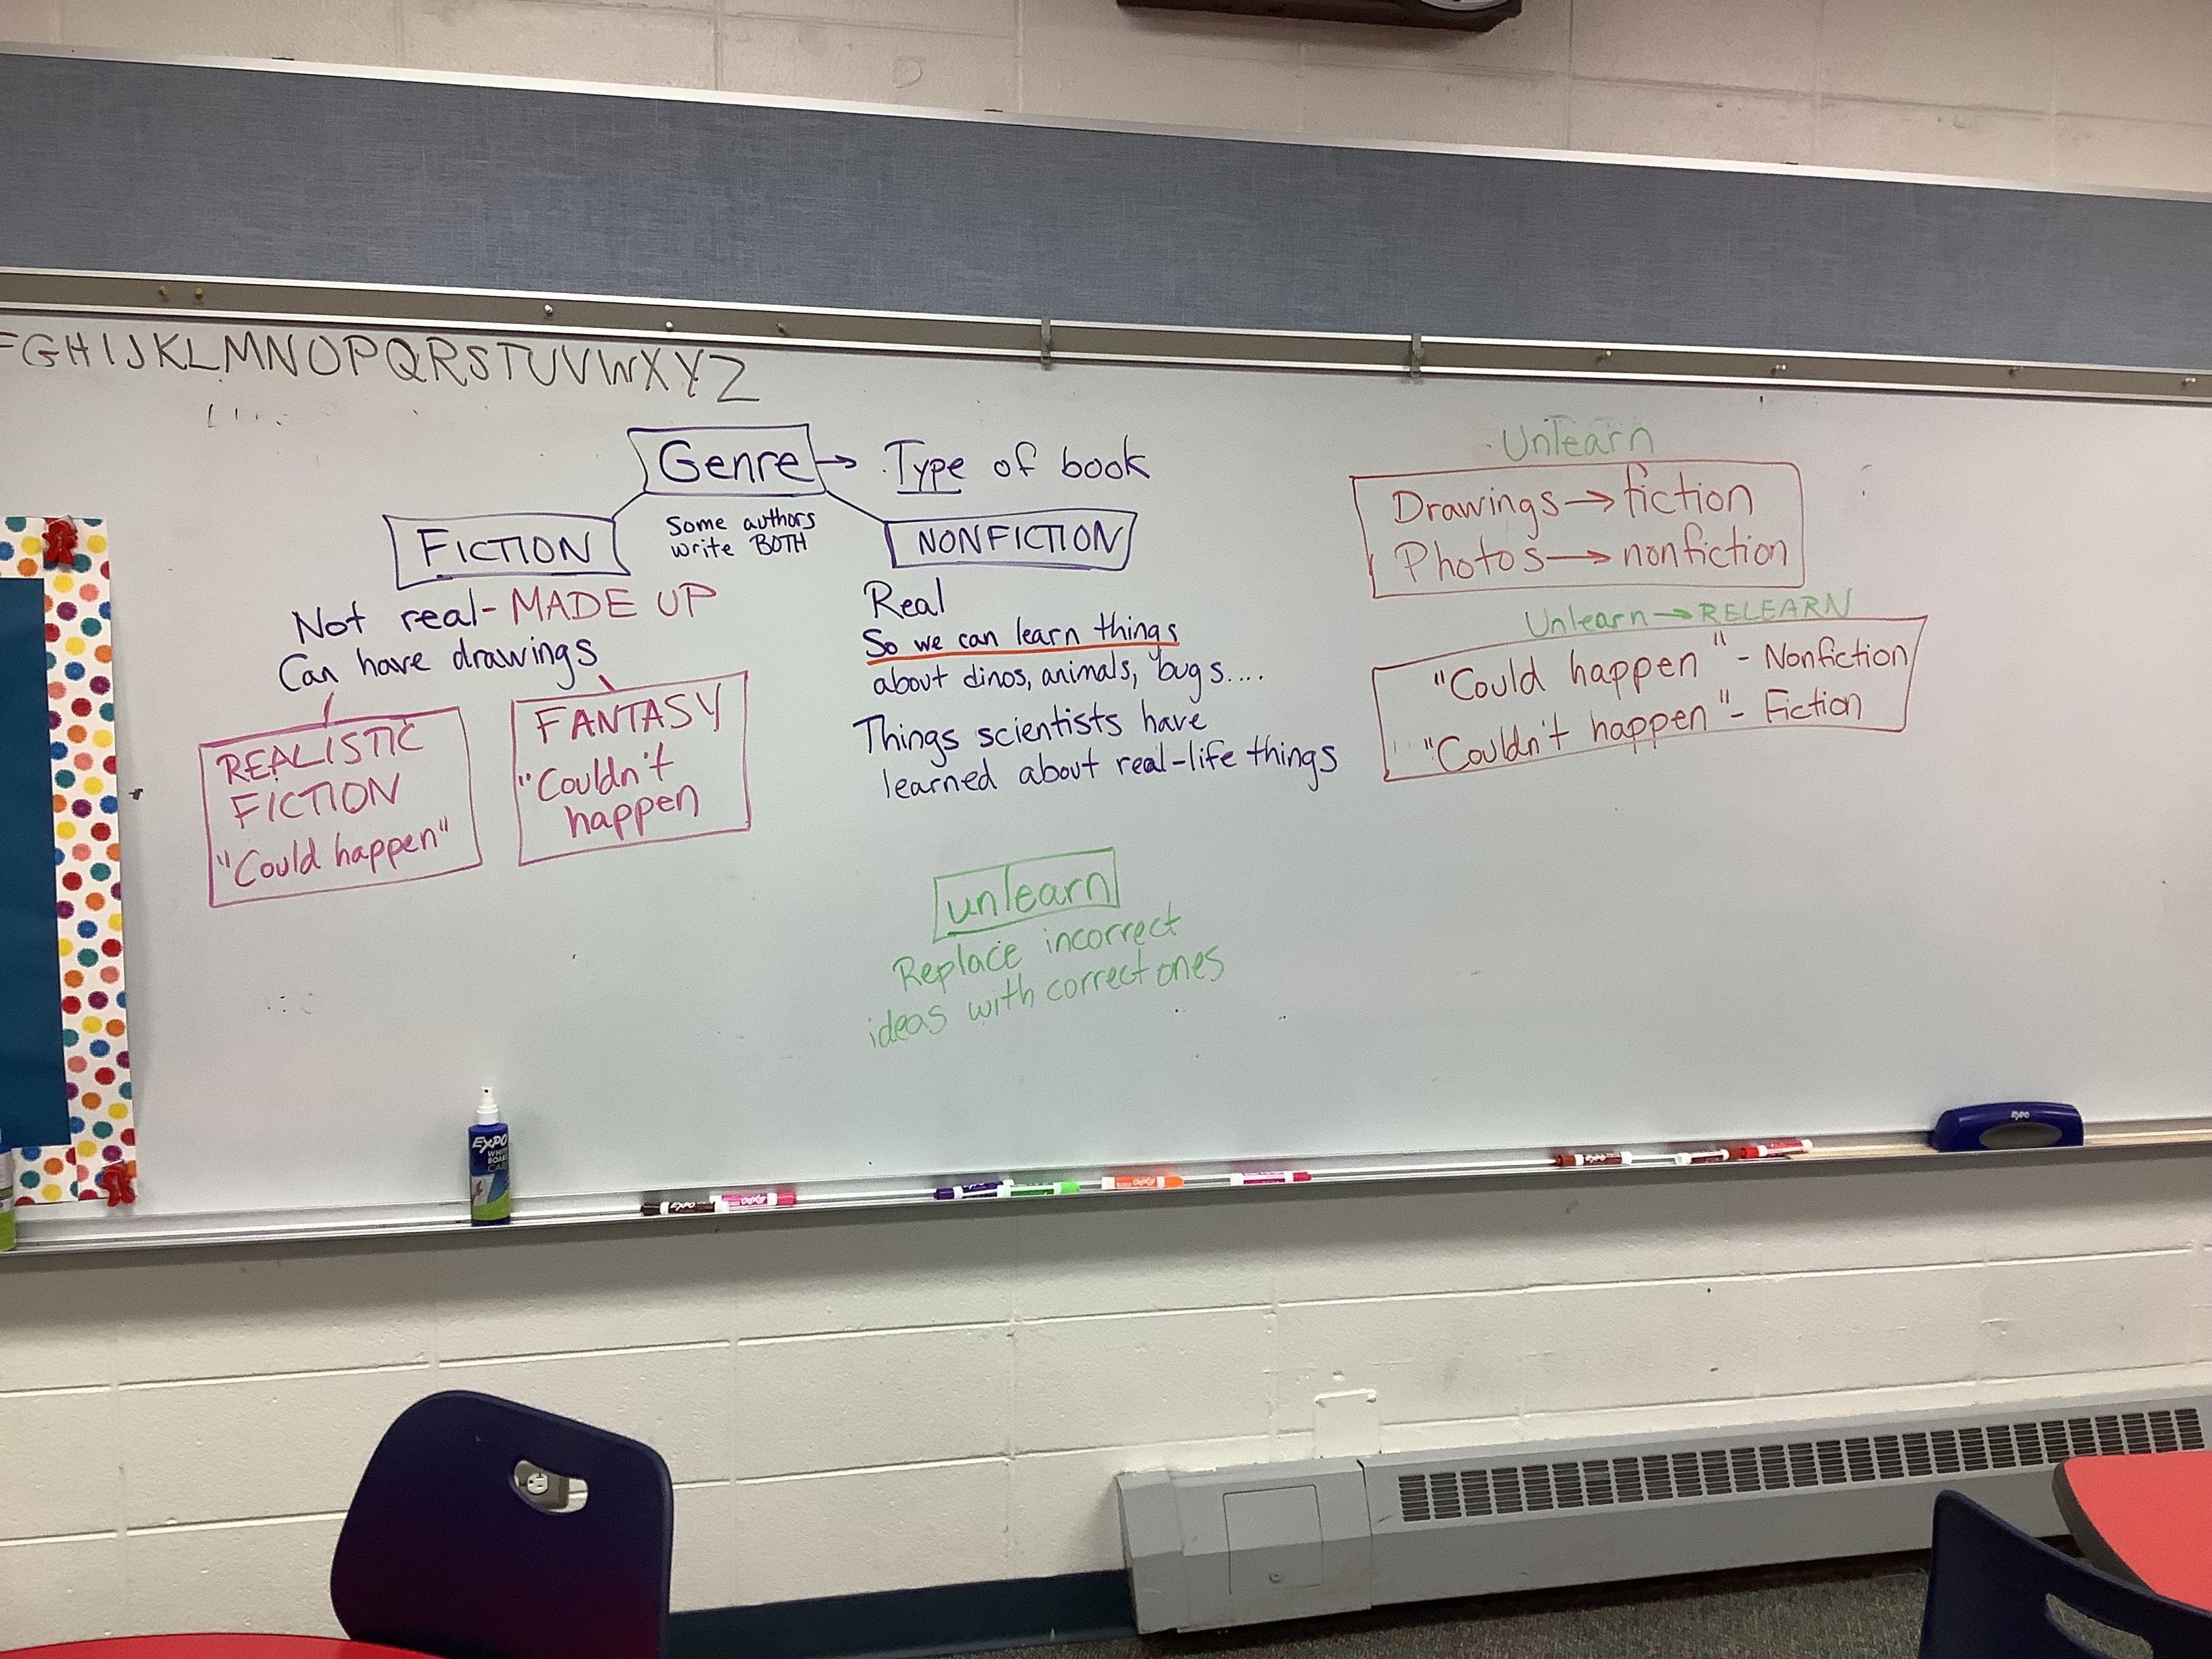 FGHIJKLMNOPQRSTUVWXYZ
Genre → Type of book
FICTION
Some authors
write BOTH
NONFICTION
Not real-MADE UP
Can have drawings
REALISTIC
FICTION
"Could happen"
FANTASY
"Couldn't
happen
Real
So we can learn things
about dinos, animals, bugs....
Things scientists have
learned about real-life things
unlearn
Replace incorrect
ideas with correct ones
Unlearn
Drawings → fiction
Photos → nonfiction
Unlearn → RELEARN
"Could happen" - Nonfiction
"Couldn't happen" - Fiction
EXPO
WHITE
BOARD
EXPO
EXPO
EXPO